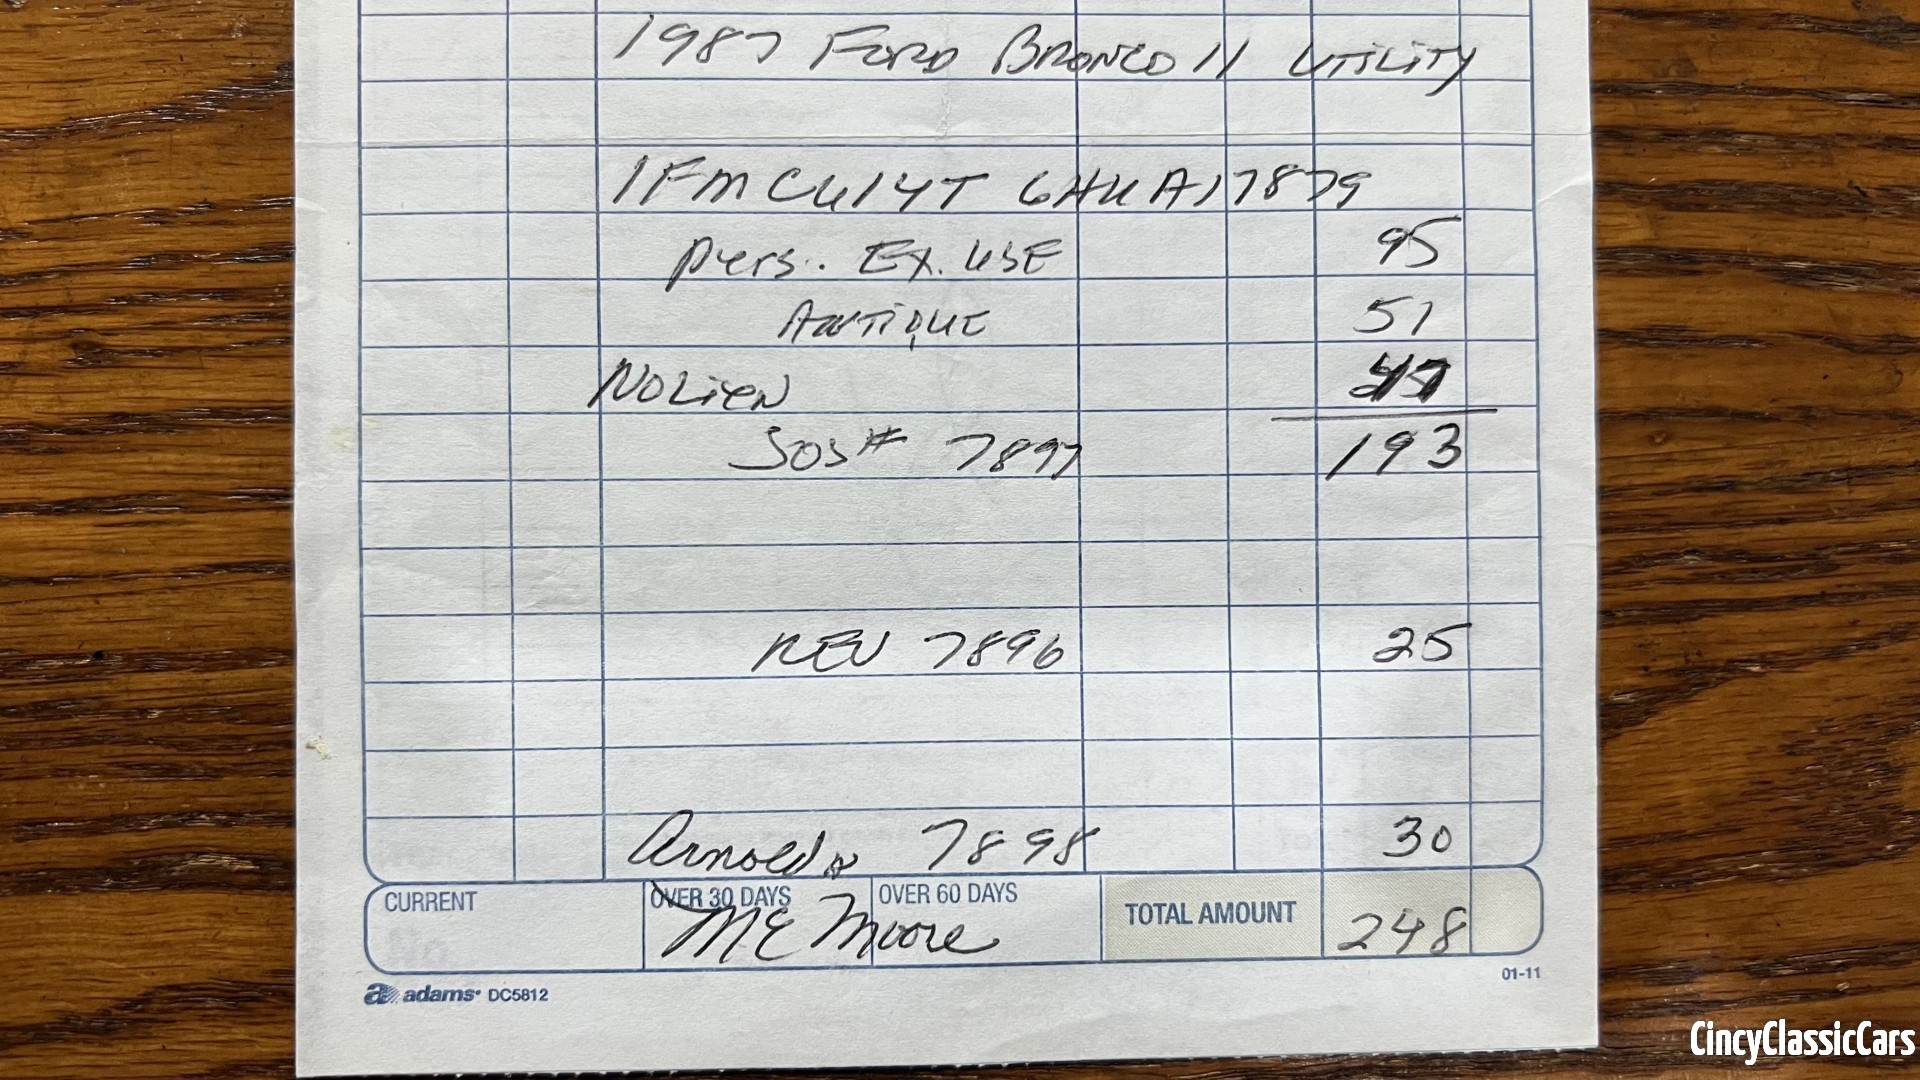 1987 FORD BRONCO II UTILITY
1FMCU14T 6HUA17879
pers. EX. USE 95
ANTIQUE 51
NO Lien 47
SOS# 7897 193
REV 7896 25
Arnold 7898 30
CURRENT OVER 30 DAYS OVER 60 DAYS TOTAL AMOUNT 248
Mc Moore
No.
adams DC5812 01-11
CincyClassicCars